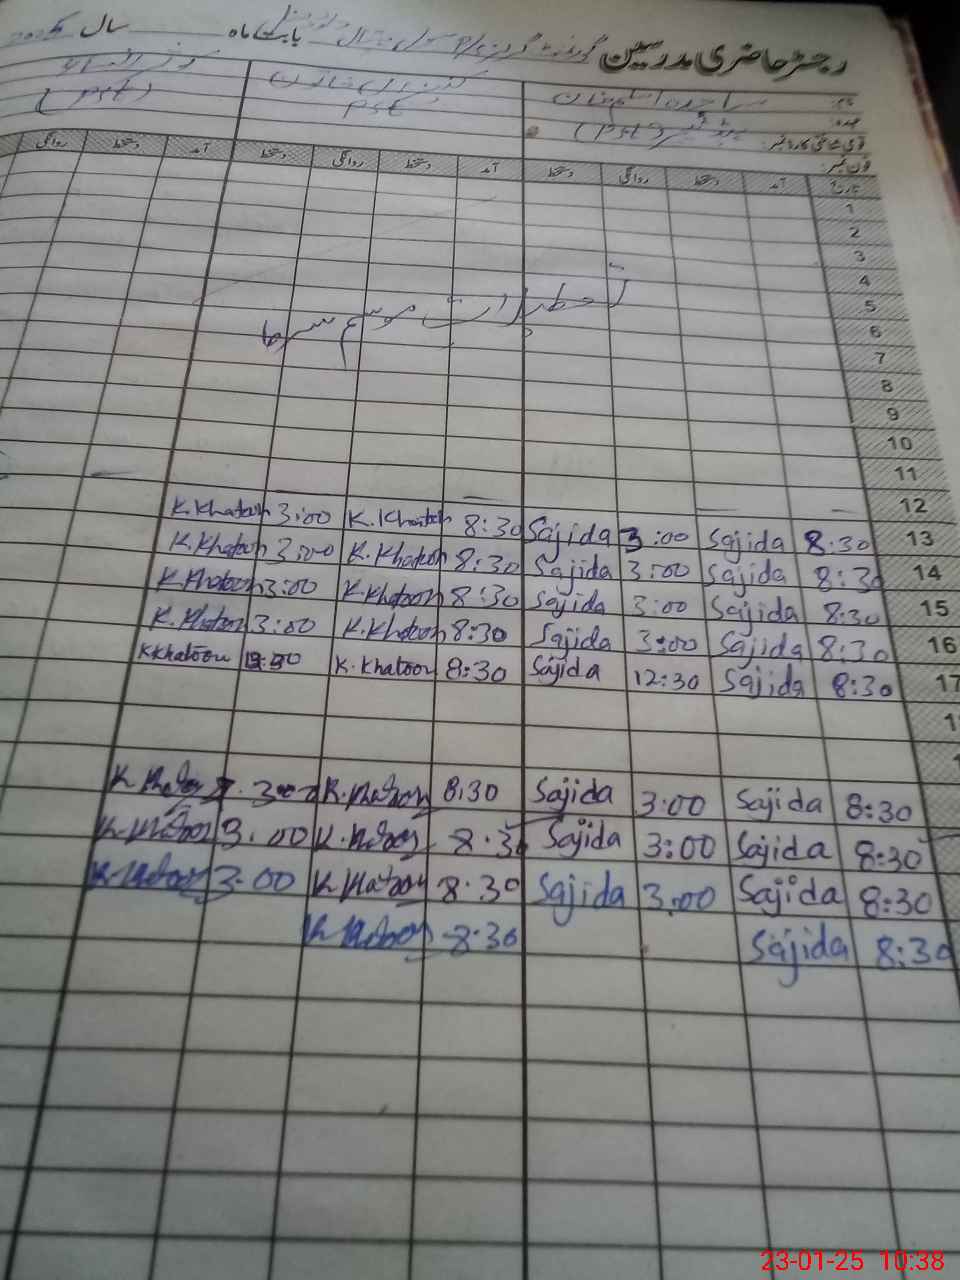 رجسٹر حاضری مدرسین بابت ماہ سال 2025
نام:
عہدہ: (PST) PST (PST)
قومی شناختی کارڈ نمبر:
فون نمبر:
تاریخ آمد دستخط روانگی دستخط آمد دستخط روانگی دستخط آمد دستخط روانگی
1
2
3
4
تعطیلات موسم سرما
5
6
7
8
9
10
11
12
13 8:30 Sajida 3:00 Sajida 8:30 K.Khatoon 3:00 K.Khatoon
14 8:30 Sajida 3:00 Sajida 8:30 K.Khatoon 3:00 K.Khatoon
15 8:30 Sajida 3:00 Sajida 8:30 K.Khatoon 3:00 K.Khatoon
16 8:30 Sajida 3:00 Sajida 8:30 K.Khatoon 3:00 K.Khatoon
17 8:30 Sajida 12:30 Sajida 8:30 K.Khatoon K.Khatoon
8:30 Sajida 3:00 Sajida 8:30 K.Khatoon 3:00 K.Khatoon
8:30 Sajida 3:00 Sajida 8:30 K.Khatoon 3:00 K.Khatoon
8:30 Sajida 3:00 Sajida 8:30 K.Khatoon 3:00 K.Khatoon
8:30 Sajida 8:30 K.Khatoon
23-01-25 10:38